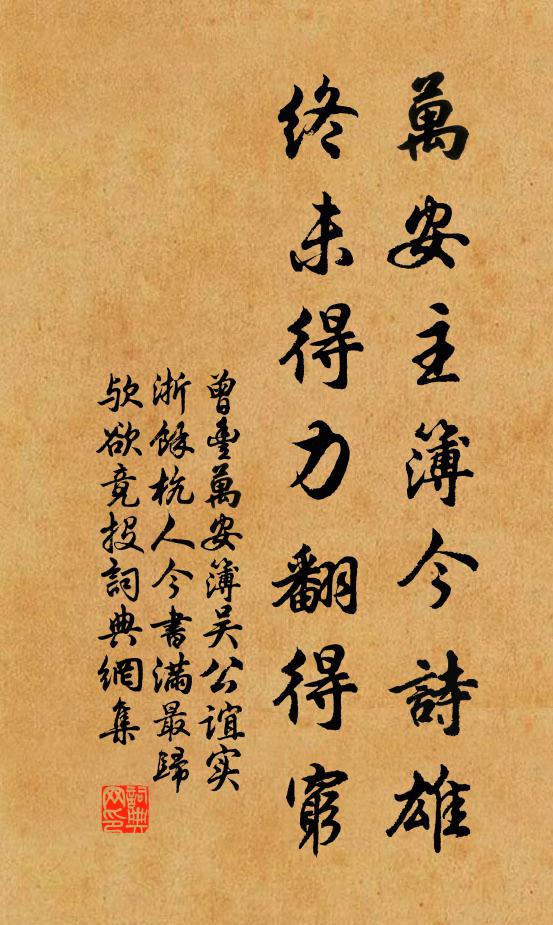 萬安主簿今詩雄
終未得力翻得窮
曾豐萬安簿吳公誼实
浙餘杭人今書滿最歸
欤欲竟投詞典網集
詞典网印